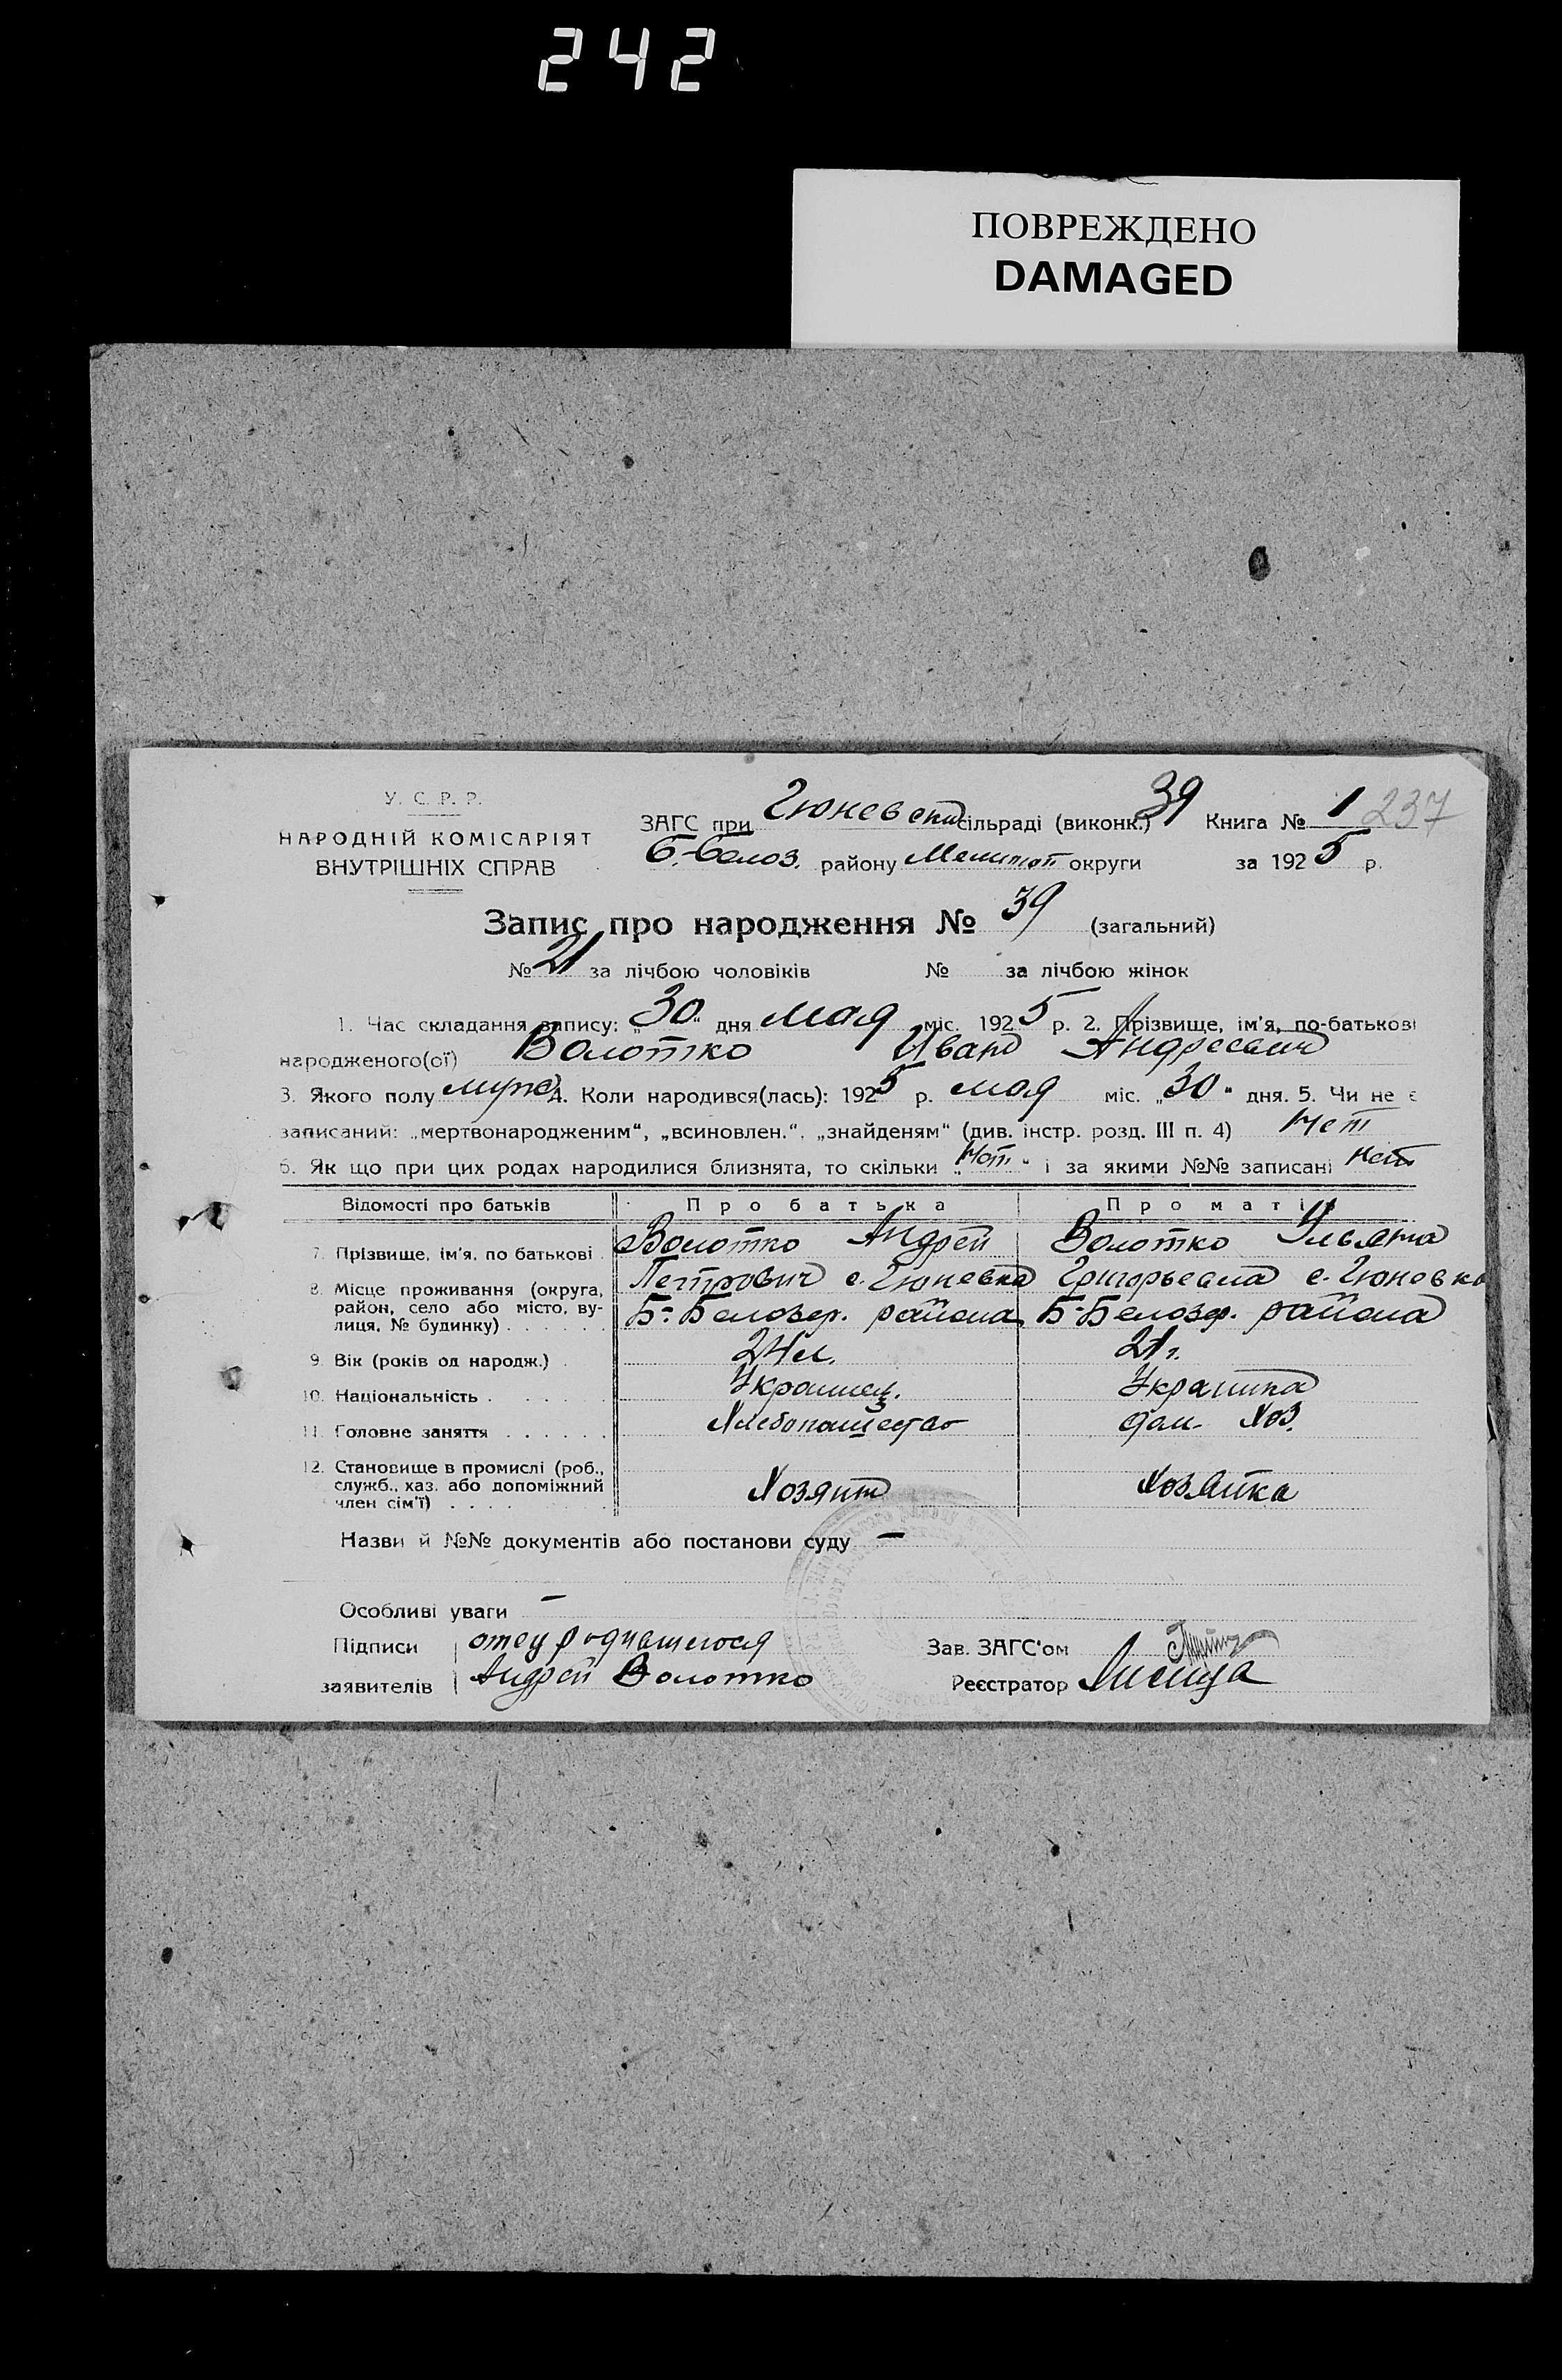 242
ПОВРЕЖДЕНО
DAMAGED
У. С. Р. Р.
НАРОДНІЙ КОМІСАРІЯТ
ВНУТРІШНІХ СПРАВ
ЗАГС при Гюневский сільраді (виконк.) 39 Книга № 1 237
Б.-Белоз. району Мелитоп округи за 1925 р.
Запис про народження № 39 (загальний)
№ 21 за лічбою чоловіків № за лічбою жінок
1. Час складання запису: „30“ дня мая міс. 1925 р. 2. Прізвище, ім'я, по-батькові
народженого(ої) Волотко Иван Андреевич
3. Якого полу муж 4. Коли народився(лась): 1925 р. мая міс. „30“ дня. 5. Чи не є
записаний: „мертвонародженим“, „всиновлен.“, „знайденям“ (див. інстр. розд. III п. 4) Нет
6. Як що при цих родах народилися близнята, то скільки „Нет“ і за якими №№ записані нет
Відомості про батьків Про батька Про матір
7. Прізвище, ім'я, по батькові Волотко Андрей Волотко Ульяна
Петрович с. Гюневка Григорьевна с. Гюневка
8. Місце проживання (округа, район, село або місто, вулиця, № будинку) Б-Белозер. района Б-Белозер. района
9. Вік (років од народж.) 24 л. 21 г.
10. Національність Украинец. Украинка
11. Головне заняття Хлебопашество дом. хоз.
12. Становище в промислі (роб., служб., хаз. або допоміжний член сім'ї) Хозяин Хозяйка
Назви й №№ документів або постанови суду —
Особливі уваги —
Підписи отец родившегося Зав. ЗАГС'ом
заявителів Андрей Волотко Реєстратор Лисица